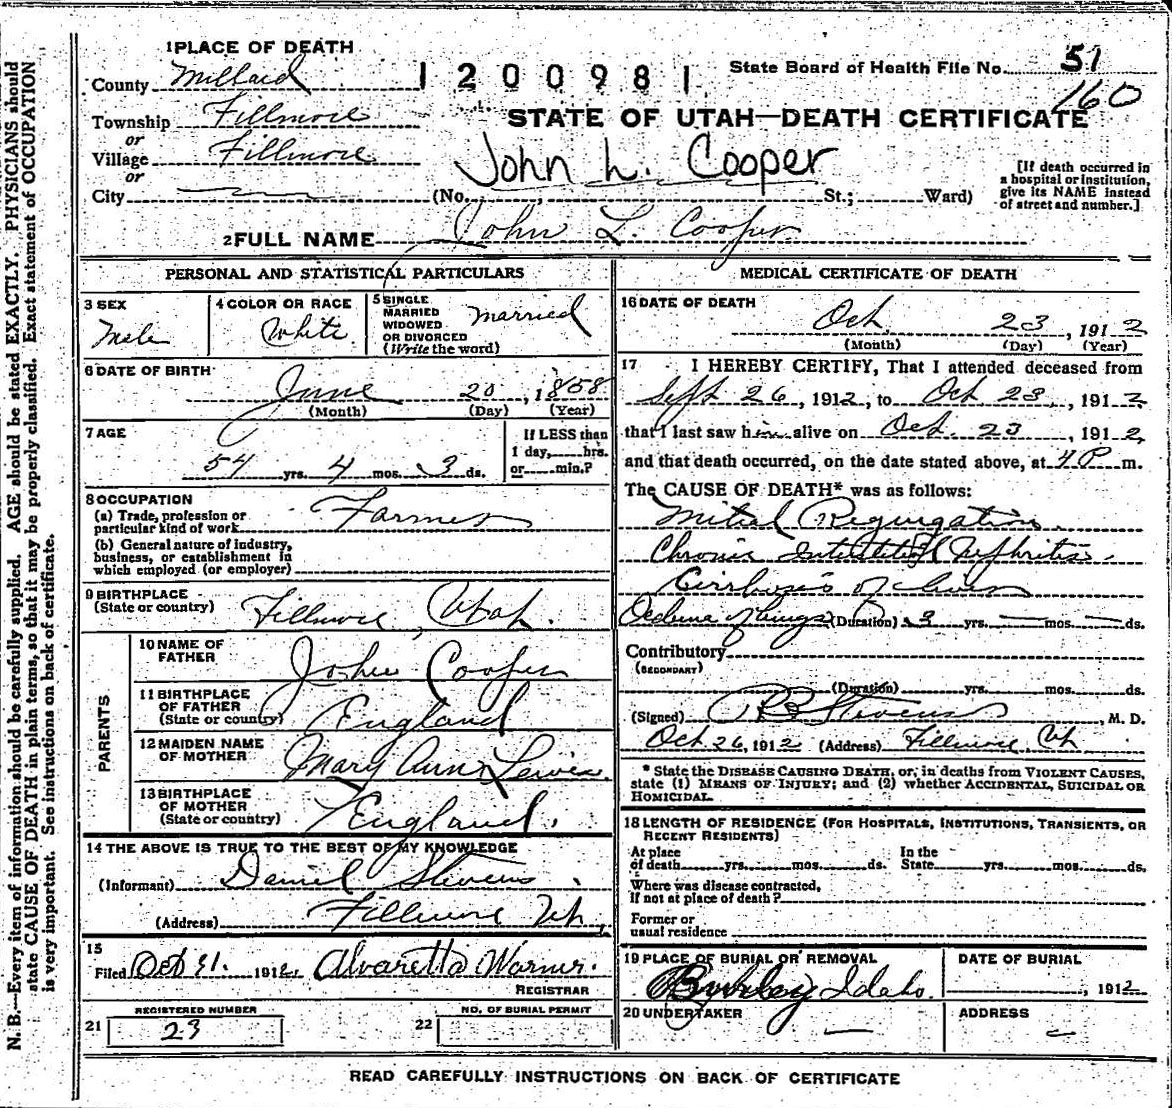 1 PLACE OF DEATH
County Millard
1200981
State Board of Health File No. 51
160
Township Fillmore
or
Village Fillmore
or
City
STATE OF UTAH—DEATH CERTIFICATE
John L. Cooper
(No. St.; Ward)
[If death occurred in
a hospital or institution,
give its NAME instead
of street and number.]
2 FULL NAME John L. Cooper
PERSONAL AND STATISTICAL PARTICULARS
3 SEX
Male
4 COLOR OR RACE
White
5 SINGLE
MARRIED
WIDOWED
OR DIVORCED
(Write the word)
Married
6 DATE OF BIRTH
June 20, 1858
(Month) (Day) (Year)
7 AGE
54 yrs. 4 mos. 3 ds.
If LESS than
1 day, hrs.
or min.?
8 OCCUPATION
(a) Trade, profession or
particular kind of work Farmer
(b) General nature of industry,
business, or establishment in
which employed (or employer)
9 BIRTHPLACE
(State or country) Fillmore, Utah.
PARENTS
10 NAME OF
FATHER
John Cooper
11 BIRTHPLACE
OF FATHER
(State or country) England
12 MAIDEN NAME
OF MOTHER Mary Ann Lewis.
13 BIRTHPLACE
OF MOTHER
(State or country) England.
14 THE ABOVE IS TRUE TO THE BEST OF MY KNOWLEDGE
(Informant) Daniel Stevens
(Address) Fillmore Ut,
15
Filed Oct 31. 1912. Alvaretta Warner.
REGISTRAR
21 REGISTERED NUMBER
23
22 NO. OF BURIAL PERMIT
MEDICAL CERTIFICATE OF DEATH
16 DATE OF DEATH
Oct. 23, 1912
(Month) (Day) (Year)
17 I HEREBY CERTIFY, That I attended deceased from
Sept 26, 1912, to Oct 23, 1912
that I last saw him alive on Oct. 23, 1912,
and that death occurred, on the date stated above, at 4 P m.
The CAUSE OF DEATH* was as follows:
Mitral Regurgation
Chronic Interstitial Nephritis
Cirrhosis of Liver
Oedema of lungs (Duration) 3 yrs. — mos. — ds.
Contributory
(SECONDARY)
(Duration) yrs. mos. ds.
(Signed) RB Stevens, M. D.
Oct 26, 1912 (Address) Fillmore, Ut
* State the DISEASE CAUSING DEATH, or, in deaths from VIOLENT CAUSES,
state (1) MEANS OF INJURY; and (2) whether ACCIDENTAL, SUICIDAL OR
HOMICIDAL.
18 LENGTH OF RESIDENCE (FOR HOSPITALS, INSTITUTIONS, TRANSIENTS, OR
RECENT RESIDENTS)
At place
of death yrs. mos. ds.
In the
State yrs. mos. ds.
Where was disease contracted,
If not at place of death?
Former or
usual residence
19 PLACE OF BURIAL OR REMOVAL
Burley Idaho.
DATE OF BURIAL
, 1912
20 UNDERTAKER
—
ADDRESS
READ CAREFULLY INSTRUCTIONS ON BACK OF CERTIFICATE
N. B.—Every item of information should be carefully supplied. AGE should be stated EXACTLY. PHYSICIANS should
state CAUSE OF DEATH in plain terms, so that it may be properly classified. Exact statement of OCCUPATION
is very important. See instructions on back of certificate.